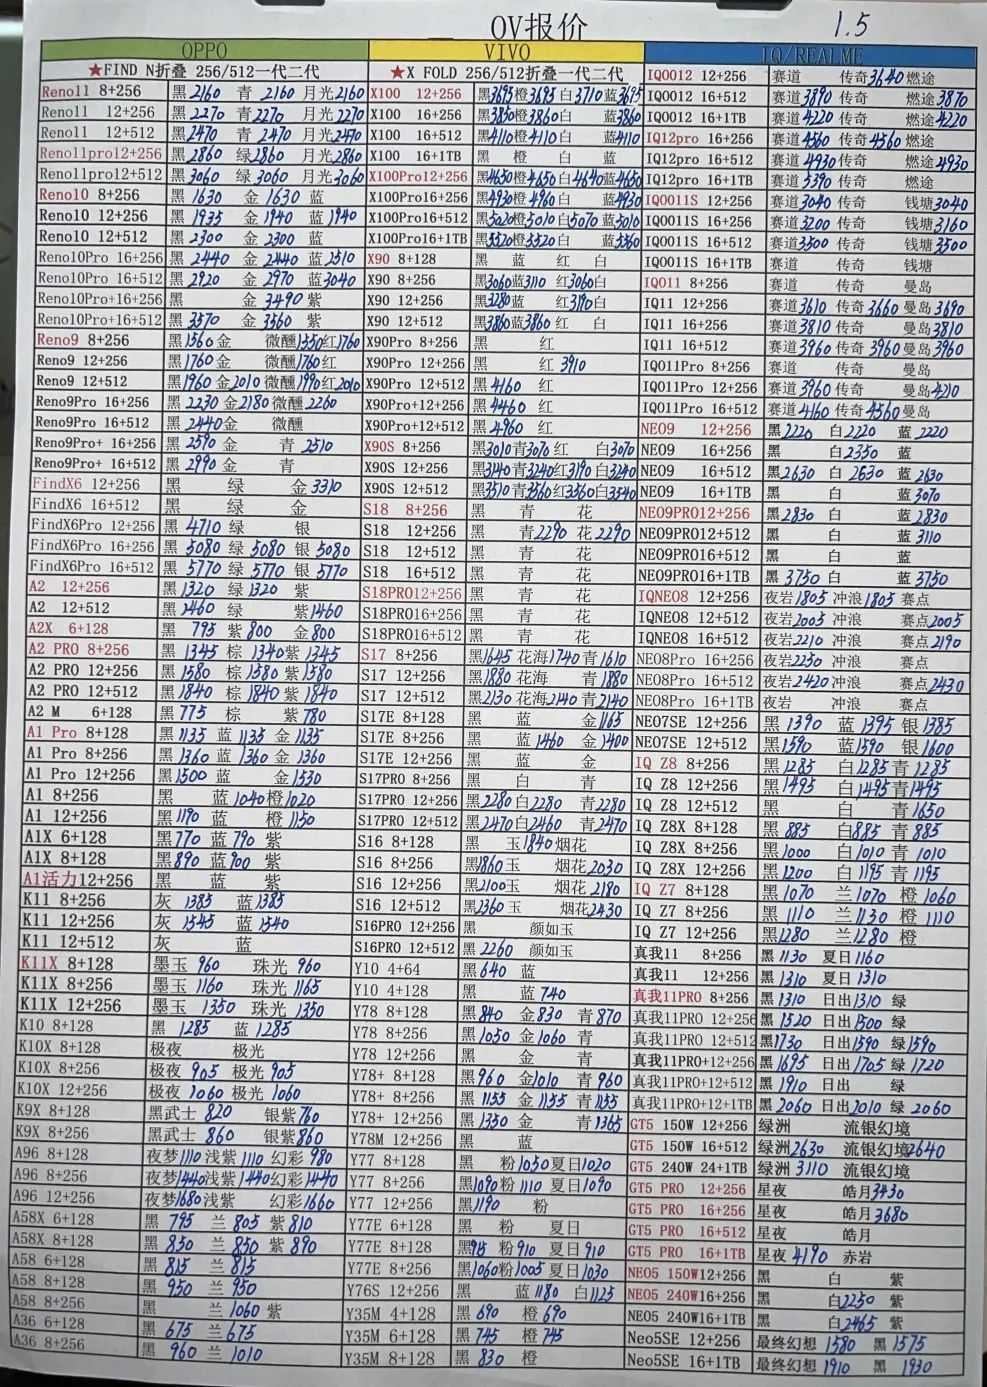 OV报价 1.5
OPPO
★FIND N折叠 256/512一代二代
Reno11 8+256 黑2160 青2160 月光2160
Reno11 12+256 黑2270 青2270 月光2270
Reno11 12+512 黑2470 青2470 月光2470
Reno11pro12+256 黑2860 绿2860 月光2860
Reno11pro12+512 黑3060 绿3060 月光3060
Reno10 8+256 黑1630 金1630 蓝
Reno10 12+256 黑1935 金1940 蓝1940
Reno10 12+512 黑2300 金2300 蓝
Reno10Pro 16+256 黑2440 金2440 蓝2510
Reno10Pro 16+512 黑2920 金2970 蓝3040
Reno10Pro+16+256 黑 金3490 紫
Reno10Pro+16+512 黑3570 金3560 紫
Reno9 8+256 黑1560 金 微醺1550 红1760
Reno9 12+256 黑1760 金 微醺1760 红
Reno9 12+512 黑1960 金2010 微醺1990 红2010
Reno9Pro 16+256 黑2230 金2180 微醺2260
Reno9Pro 16+512 黑2440 金 微醺
Reno9Pro+ 16+256 黑2590 金 青2510
Reno9Pro+ 16+512 黑2990 金 青
FindX6 12+256 黑 绿 金3310
FindX6 16+512 黑 绿 金
FindX6Pro 12+256 黑4710 绿 银
FindX6Pro 16+256 黑5080 绿5080 银5080
FindX6Pro 16+512 黑5770 绿5770 银5770
A2 12+256 黑1320 绿1320 紫
A2 12+512 黑1460 绿 紫1460
A2X 6+128 黑795 紫800 金800
A2 PRO 8+256 黑1345 棕1340 紫1345
A2 PRO 12+256 黑1580 棕1580 紫1580
A2 PRO 12+512 黑1840 棕1840 紫1840
A2 M 6+128 黑775 棕 紫780
A1 Pro 8+128 黑1135 蓝1135 金1135
A1 Pro 8+256 黑1360 蓝1360 金1360
A1 Pro 12+256 黑1500 蓝 金1530
A1 8+256 黑 蓝1040 橙1020
A1 12+256 黑1190 蓝 橙1150
A1X 6+128 黑770 蓝790 紫
A1X 8+128 黑890 蓝900 紫
A1活力12+256 黑 蓝 紫
K11 8+256 灰1385 蓝1385
K11 12+256 灰1545 蓝1540
K11 12+512 灰 蓝
K11X 8+128 墨玉960 珠光960
K11X 8+256 墨玉1160 珠光1165
K11X 12+256 墨玉1350 珠光1350
K10 8+128 黑1285 蓝1285
K10X 8+128 极夜 极光
K10X 8+256 极夜905 极光905
K10X 12+256 极夜1060 极光1060
K9X 8+128 黑武士820 银紫760
K9X 8+256 黑武士860 银紫860
A96 8+128 夜梦1110 浅紫1110 幻彩980
A96 8+256 夜梦1440 浅紫1440 幻彩1440
A96 12+256 夜梦1680 浅紫 幻彩1660
A58X 6+128 黑795 兰805 紫810
A58X 8+128 黑850 兰850 紫890
A58 6+128 黑815 兰815
A58 8+128 黑950 兰950
A58 8+256 黑 兰1060 紫
A36 6+128 黑675 兰675
A36 8+256 黑960 兰1010
VIVO
★X FOLD 256/512折叠一代二代
X100 12+256 黑3695 橙3695 白3710 蓝3695
X100 16+256 黑3850 橙3860 白 蓝3860
X100 16+512 黑4110 橙4110 白 蓝4110
X100 16+1TB 黑 橙 白 蓝
X100Pro12+256 黑4650 橙4650 白4640 蓝4650
X100Pro16+256 黑4930 橙4960 白 蓝4930
X100Pro16+512 黑5020 橙5010 白5070 蓝5010
X100Pro16+1TB 黑5520 橙5520 白 蓝5560
X90 8+128 黑 蓝 红 白
X90 8+256 黑3060 蓝3110 红3060 白
X90 12+256 黑3280 蓝 红3190 白
X90 12+512 黑3860 蓝3860 红 白
X90Pro 8+256 黑 红
X90Pro 12+256 黑 红3910
X90Pro 12+512 黑4160 红
X90Pro+12+256 黑4460 红
X90Pro+12+512 黑4960 红
X90S 8+256 黑3010 青3070 红 白3070
X90S 12+256 黑3140 青3240 红3190 白3240
X90S 12+512 黑3510 青3560 红3560 白3540
S18 8+256 黑 青 花
S18 12+256 黑 青2290 花2290
S18 12+512 黑 青 花
S18 16+512 黑 青 花
S18PRO12+256 黑 青 花
S18PRO16+256 黑 青 花
S18PRO16+512 黑 青 花
S17 8+256 黑1645 花海1740 青1610
S17 12+256 黑1880 花海 青1880
S17 12+512 黑2130 花海2140 青2140
S17E 8+128 黑 蓝 金1165
S17E 8+256 黑 蓝1460 金1400
S17E 12+256 黑 蓝 金
S17PRO 8+256 黑 白 青
S17PRO 12+256 黑2280 白2280 青2280
S17PRO 12+512 黑2470 白2460 青2470
S16 8+128 黑 玉1840 烟花
S16 8+256 黑1860 玉 烟花2030
S16 12+256 黑2100 玉 烟花2180
S16 12+512 黑2360 玉 烟花2430
S16PRO 12+256 黑 颜如玉
S16PRO 12+512 黑2260 颜如玉
Y10 4+64 黑640 蓝
Y10 4+128 黑 蓝740
Y78 8+128 黑840 金830 青870
Y78 8+256 黑1050 金1060 青
Y78 12+256 黑 金 青
Y78+ 8+128 黑960 金1010 青960
Y78+ 8+256 黑1155 金1155 青1155
Y78+ 12+256 黑1350 金 青1365
Y78M 12+256 黑 蓝
Y77 8+128 黑 粉1050 夏日1020
Y77 8+256 黑1090 粉1110 夏日1090
Y77 12+256 黑1190 粉
Y77E 6+128 黑 粉 夏日
Y77E 8+128 黑915 粉910 夏日910
Y77E 8+256 黑1060 粉1005 夏日1030
Y76S 12+256 黑 蓝1180 白1125
Y35M 4+128 黑690 橙690
Y35M 6+128 黑745 橙745
Y35M 8+128 黑830 橙
IQ/REALME
IQOO12 12+256 赛道 传奇3640 燃途
IQOO12 16+512 赛道3890 传奇 燃途3870
IQOO12 16+1TB 赛道4220 传奇 燃途4220
IQ12pro 16+256 赛道4560 传奇4560 燃途
IQ12pro 16+512 赛道4930 传奇 燃途4930
IQ12pro 16+1TB 赛道5390 传奇 燃途
IQOO11S 12+256 赛道3040 传奇 钱塘3040
IQOO11S 16+256 赛道3200 传奇 钱塘3160
IQOO11S 16+512 赛道3500 传奇 钱塘3500
IQOO11S 16+1TB 赛道 传奇 钱塘
IQO11 8+256 赛道 传奇 曼岛
IQ11 12+256 赛道3610 传奇3660 曼岛3690
IQ11 16+256 赛道3810 传奇 曼岛3810
IQ11 16+512 赛道3960 传奇3960 曼岛3960
IQO11Pro 8+256 赛道 传奇 曼岛
IQO11Pro 12+256 赛道3960 传奇 曼岛4210
IQO11Pro 16+512 赛道4160 传奇4560 曼岛
NEO9 12+256 黑2220 白2220 蓝2220
NEO9 16+256 黑 白2350 蓝
NEO9 16+512 黑2630 白2630 蓝2630
NEO9 16+1TB 黑 白 蓝3070
NEO9PRO12+256 黑2830 白 蓝2830
NEO9PRO12+512 黑 白 蓝3110
NEO9PRO16+512 黑 白 蓝
NEO9PRO16+1TB 黑3750 白 蓝3750
IQNEO8 12+256 夜岩1805 冲浪1805 赛点
IQNEO8 12+512 夜岩2005 冲浪 赛点2005
IQNEO8 16+512 夜岩2210 冲浪 赛点2190
NEO8Pro 16+256 夜岩2250 冲浪 赛点
NEO8Pro 16+512 夜岩2420 冲浪 赛点2430
NEO8Pro 16+1TB 夜岩 冲浪 赛点
NEO7SE 12+256 黑1390 蓝1395 银1385
NEO7SE 12+512 黑1590 蓝1590 银1600
IQ Z8 8+256 黑1285 白1285 青1285
IQ Z8 12+256 黑1495 白1495 青1495
IQ Z8 12+512 黑 白 青1650
IQ Z8X 8+128 黑885 白885 青885
IQ Z8X 8+256 黑1000 白1010 青1010
IQ Z8X 12+256 黑1200 白1195 青1195
IQ Z7 8+128 黑1070 兰1070 橙1060
IQ Z7 8+256 黑1110 兰1130 橙1110
IQ Z7 12+256 黑1280 兰1280 橙
真我11 8+256 黑1130 夏日1160
真我11 12+256 黑1310 夏日1310
真我11PRO 8+256 黑1310 日出1310 绿
真我11PRO 12+256 黑1520 日出1500 绿
真我11PRO 12+512 黑1730 日出1590 绿1590
真我11PRO+12+256 黑1695 日出1705 绿1720
真我11PRO+12+512 黑1910 日出 绿
真我11PRO+12+1TB 黑2060 日出2010 绿2060
GT5 150W 12+256 绿洲 流银幻境
GT5 150W 16+512 绿洲2630 流银幻境2640
GT5 240W 24+1TB 绿洲3110 流银幻境
GT5 PRO 12+256 星夜 皓月3430
GT5 PRO 16+256 星夜 皓月3680
GT5 PRO 16+512 星夜 皓月
GT5 PRO 16+1TB 星夜4190 赤岩
NEO5 150W12+256 黑 白 紫
NEO5 240W16+256 黑 白2250 紫
NEO5 240W16+1TB 黑 白2465 紫
Neo5SE 12+256 最终幻想1580 黑1575
Neo5SE 16+1TB 最终幻想1910 黑1930